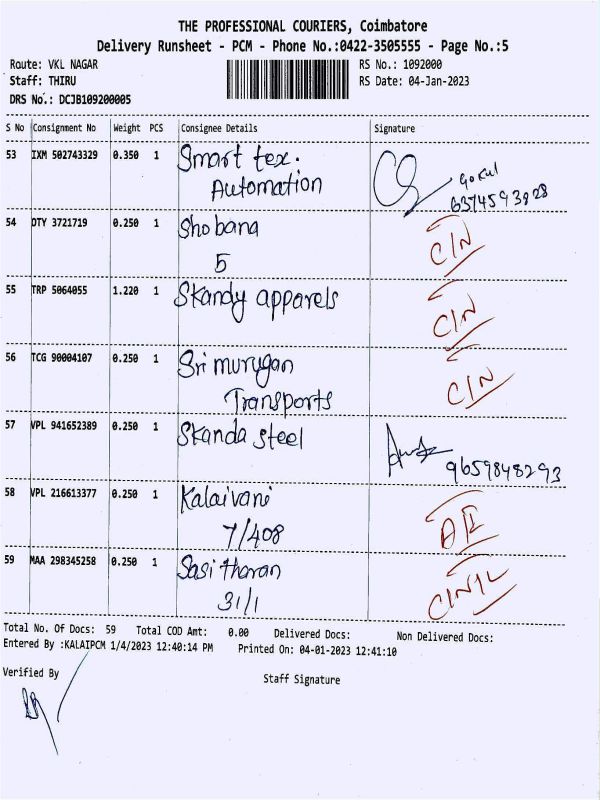 THE PROFESSIONAL COURIERS, Coimbatore
Delivery Runsheet - PCM - Phone No.:0422-3505555 - Page No.:5
Route: VKL NAGAR
RS No.: 1092000
Staff: THIRU
RS Date: 04-Jan-2023
DRS No.: DCJB109200005
S No Consignment No Weight PCS Consignee Details Signature
53 IXM 502743329 0.350 1 Smart tex.
Automation
Gokul
6374593828
54 DTY 3721719 0.250 1 Shobana
5
C/N
55 TRP 5064055 1.220 1 Skandy apparels
C/N
56 TCG 90004107 0.250 1 Sri murugan
Transports
C/N
57 VPL 941652389 0.250 1 Skanda steel
9659848293
58 VPL 216613377 0.250 1 Kalaivani
7/408
59 MAA 298345258 0.250 1 Sasitharan
31/1
Total No. Of Docs: 59 Total COD Amt: 0.00 Delivered Docs: Non Delivered Docs:
Entered By :KALAIPCM 1/4/2023 12:40:14 PM Printed On: 04-01-2023 12:41:10
Verified By
Staff Signature